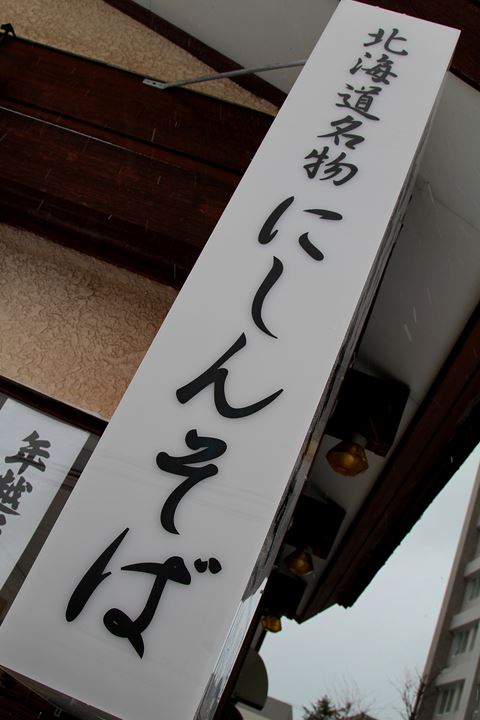 北海道名物
にしんそば
年越